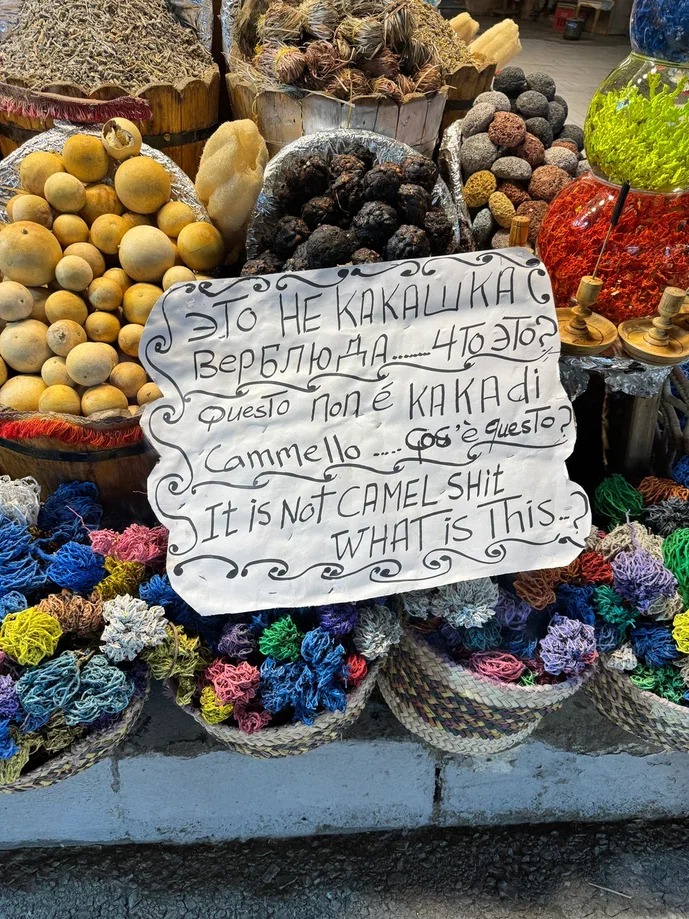 ЭТО НЕ КАКАШКА
ВЕРБЛЮДА........ ЧТО ЭТО?
QuesTo non é KAKA di
Cammello .... cos'è questo?
It is NoT CAMEL SHit
WHAT is This...?